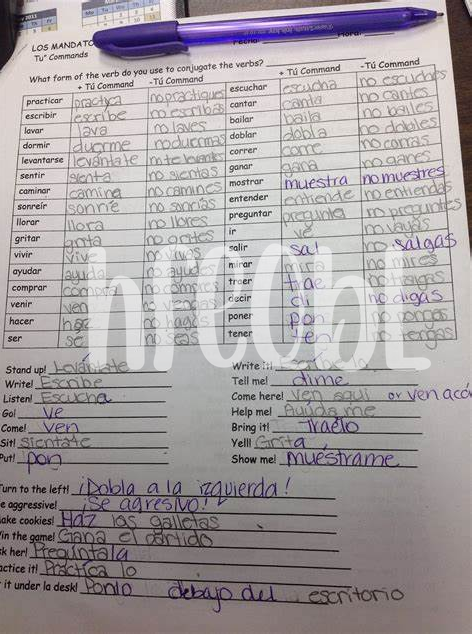 LOS MANDATO
Tu" Commands
What form of the verb do you use to conjugate the verbs?
+ Tú Command -Tú Command + Tú Command -Tú Command
practicar practica no practiques escuchar escucha no escuches
escribir escribe no escribas cantar canta no cantes
lavar lava no laves bailar baila no bailes
dormir duerme no duermas doblar dobla no dobles
levantarse levántate no te levantes correr corre no corras
sentir sienta no sientas ganar gana no ganes
caminar camina no camines mostrar muestra no muestres
sonreír sonríe no sonrías entender entiende no entiendas
llorar llora no llores preguntar pregunta no preguntes
gritar grita no grites ir ve no vayas
vivir vive no vivas salir sal no salgas
ayudar ayuda no ayudes mirar mira no mires
comprar compra no compres traer trae no traigas
venir ven no vengas decir di no digas
hacer haz no hagas poner pon no pongas
ser sé no seas tener ten no tengas
hreobt
Stand up! Levántate Write it! Escribe la
Write! Escribe Tell me! dime
Listen! Escucha Come here! ven aquí or ven acá
Go! ve Help me! Ayúdame
Come! ven Bring it! Traelo
Sit! sientate Yell! Grita
Put! pon Show me! muéstrame
Turn to the left! ¡Dobla a la izquierda!
e aggressive! ¡Se agresivo!
ake cookies! Haz las galletas
in the game! Gana el partido
sk her! Pregúntala
actice it! Practica lo
it under la desk! Ponlo debajo del escritorio